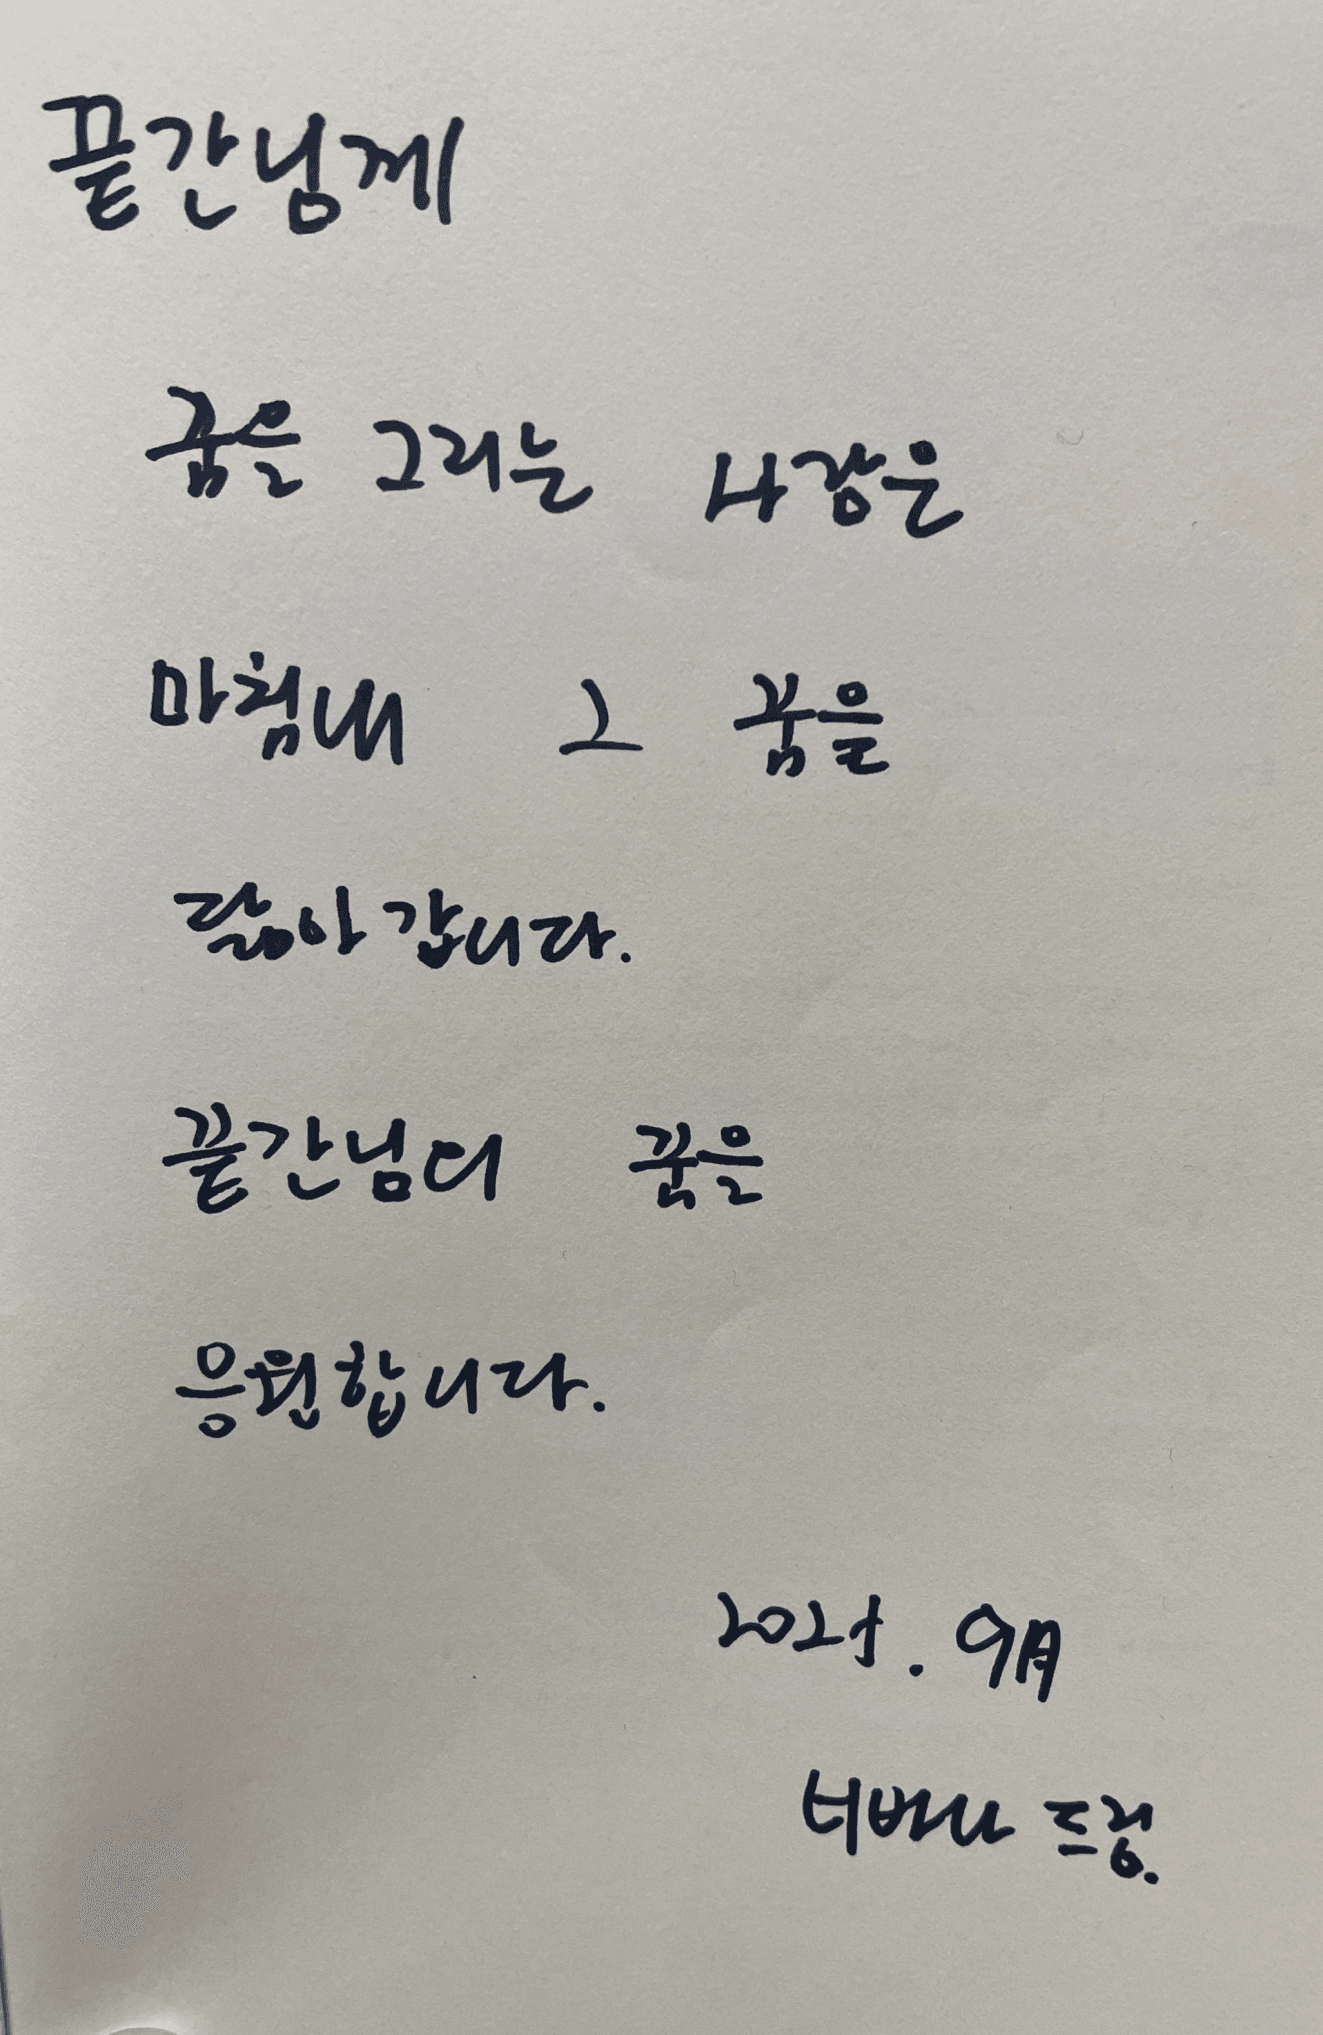 끝간님께
꿈을 그리는 사람은
마침내 그 꿈을
닮아 갑니다.
끝간님의 꿈을
응원합니다.
2025. 9月
드림.